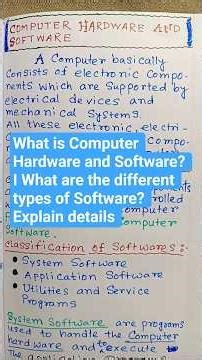 COMPUTER HARDWARE AND
SOFTWARE
A Computer basically
consists of electronic Compo-
nents which are supported by
electrical devices and
mechanical systems.
All these electronic, electri-
What is Computer
Hardware and Software?
I What are the different
types of Software?
Explain details
Software.
Classification of Softwares:-
System Software
Application Software
Utilities and Service
Programs
System Software are programs
used to handle the Computer
hardware and to execute